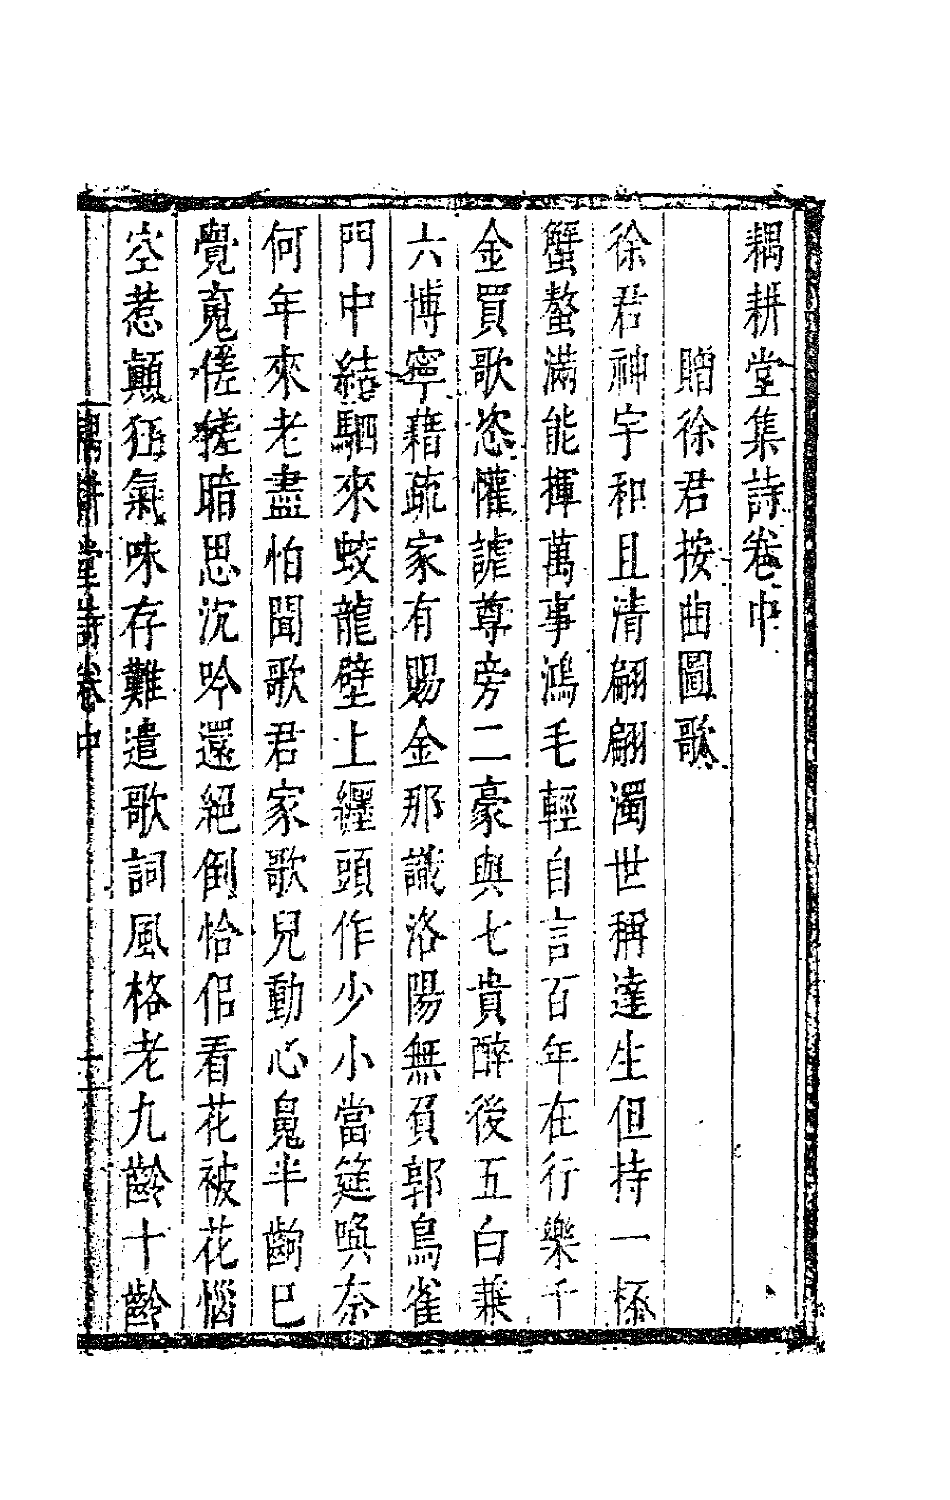 耦耕堂集詩卷中
贈徐君按曲圖歌
徐君神宇和且清翩翩濁世稱達生但持一桮
蟹螯滿能揮萬事鴻毛輕自言百年在行樂千
金買歌恣懽謔尊旁二豪與七貴醉後五白兼
六博寧藉疏家有賜金那識洛陽無負郭鳥雀
門中結駟來蛟龍壁上纏頭作少小當筵喚奈
何年來老盡怕聞歌君家歌兒動心鬼半齣巳
覺䰟傞傞暗思沉吟還絕倒恰侣看花被花惱
空惹顛狂氣味存難遣歌詞風格老九齡十齡
耦耕堂詩卷中